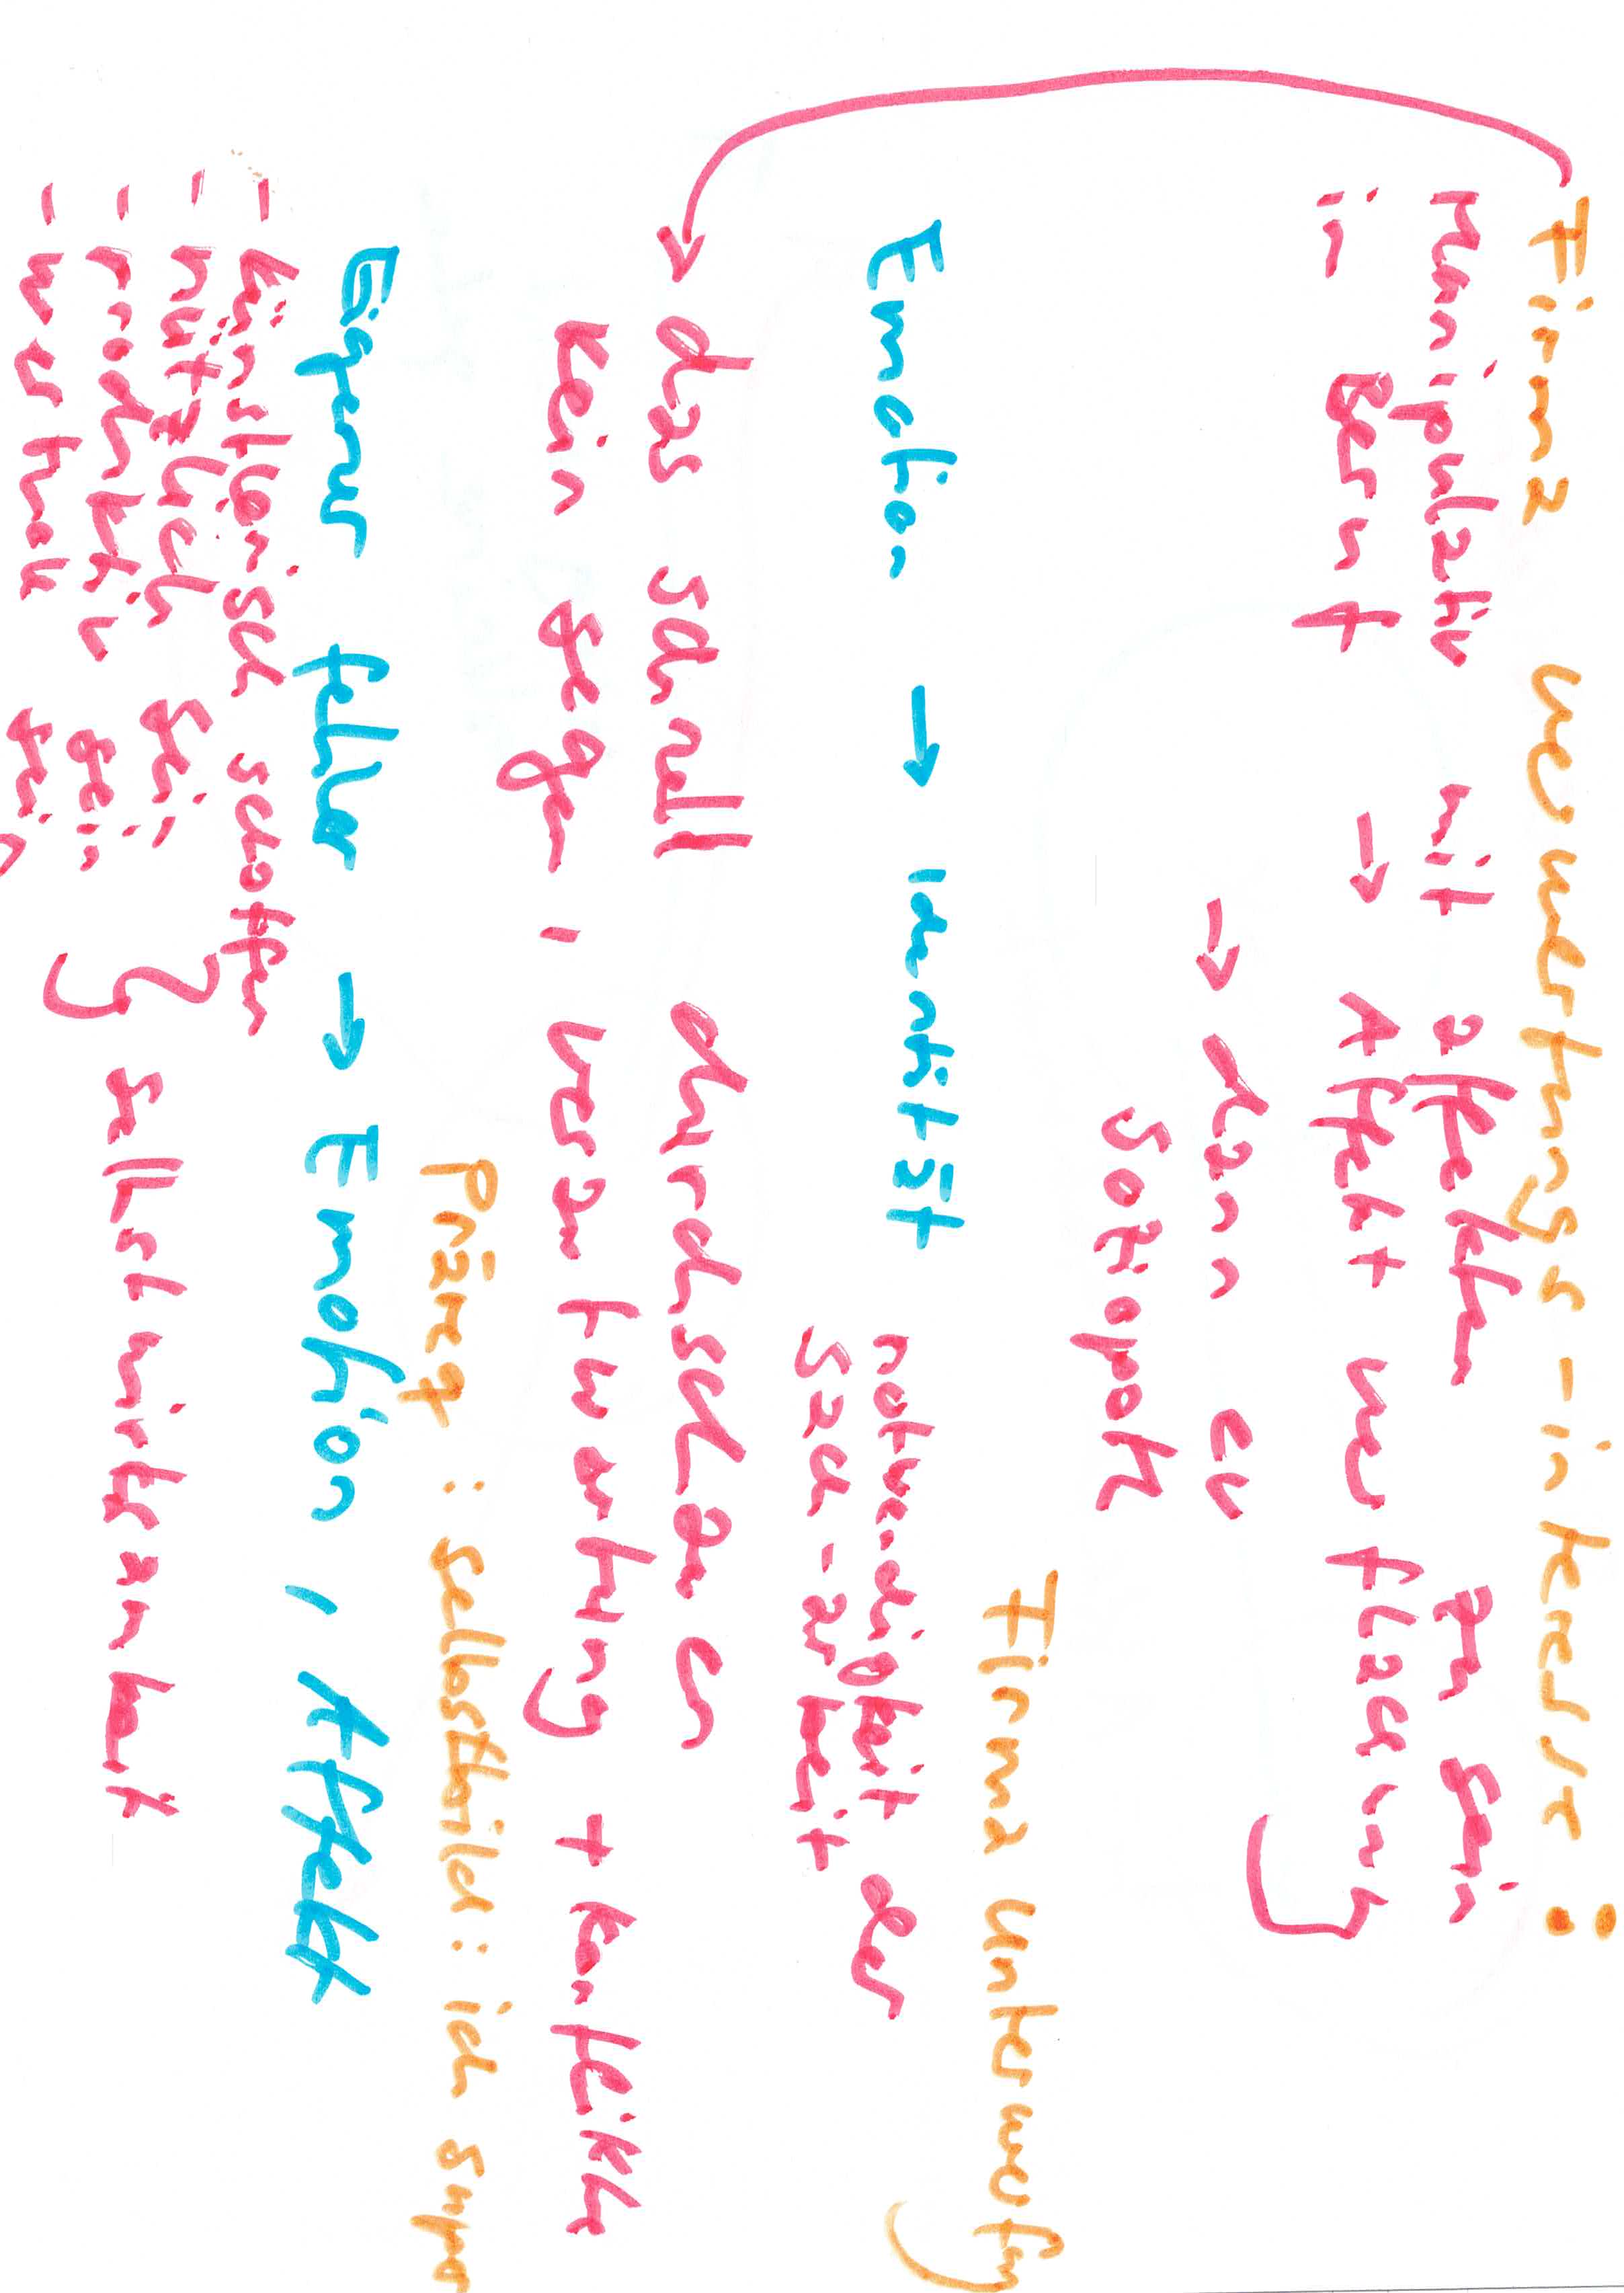 Firma verwertungs-interesse:
Manipulativ mit affekten zu sein
in Beruf → Affekt verflachung
→ dann ev
Soziopath
Firma Unterwerfung
Emotion → Identität
notwendigkeit der
sach-arbeit
→ das schnell durchschauen
kein segen, verantwortung + Konflikte
Präreq: selbstbild: ich super
Eigener fehler → Emotion, Affekt
- künstlerisch schaffen
- nützlich sein
- produktiv sein
} selbstwirksamkeit
- wertvoll sein